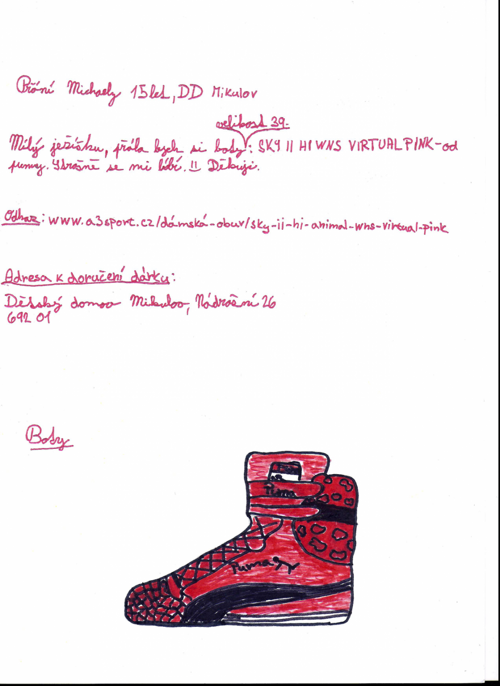 Přání Michaely 15let, DD Mikulov
velikost 39.
Milý ježíšku, přála bych si boty: SKY II HI WNS VIRTUALPINK-od
pumy. Strašně se mi líbí. !! Děkuji.
Odkaz: www.a3sport.cz/dámská-obuv/sky-ii-hi-animal-wns-virtual-pink
Adresa k doručení dárku:
Dětský domov Mikulov, Nádražní 26
692 01
Boty
Puma
Puma